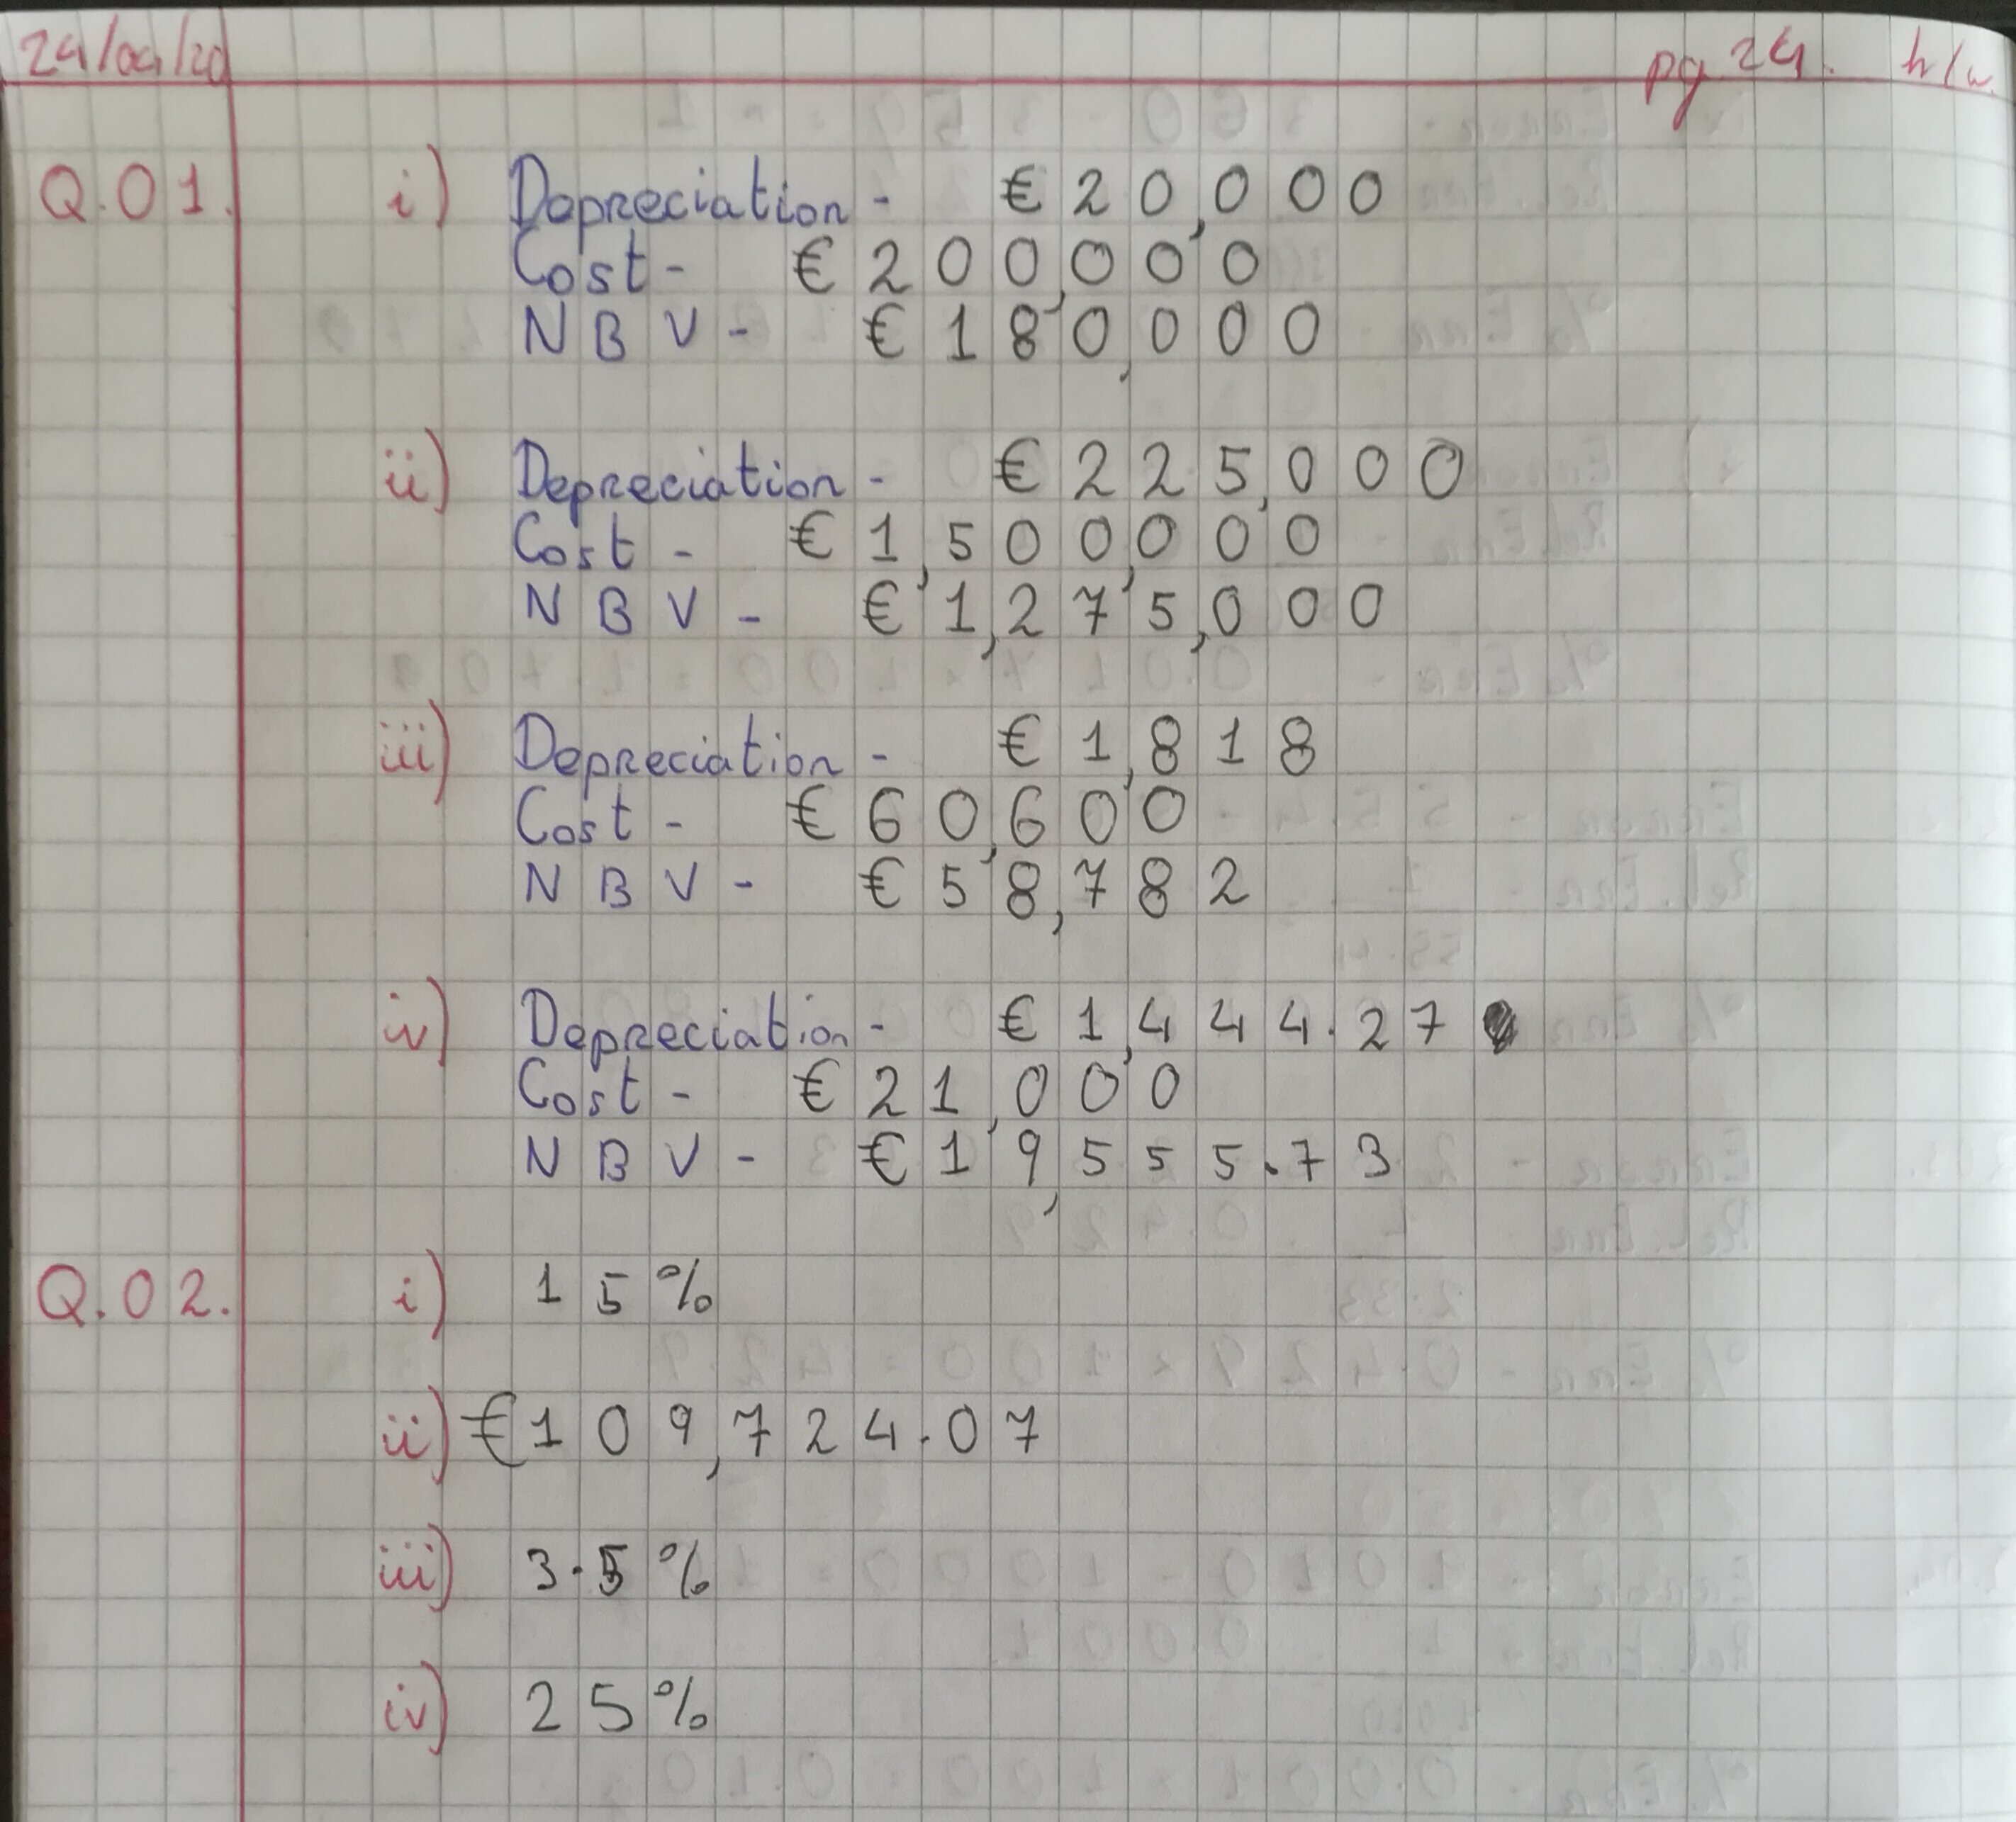 24/04/20 pg 24. h/w
Q.01. i) Depreciation - €20,000
Cost - €200,000
NBV - €180,000
ii) Depreciation - €225,000
Cost - €1,500,000
NBV - €1,275,000
iii) Depreciation - €1,818
Cost - €60,600
NBV - €58,782
iv) Depreciation - €1,444.27
Cost - €21,000
NBV - €19,555.73
Q.02. i) 15%
ii) €109,724.07
iii) 3.5%
iv) 25%